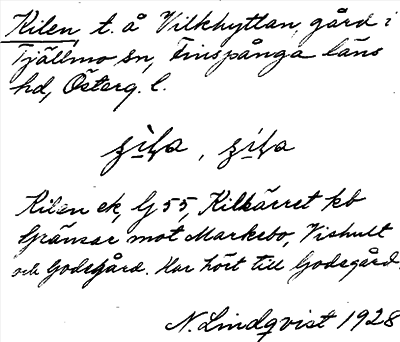 Kilen, t. å Vilkhyttan, gård i
Tjällmo sn, Finspånga läns
hd, Österg. l.
Kilen ek, G 55, Kilkärret kb
Gränsar mot Markebo, Vishult
och Godegård. Har hört till Godegård.
N. Lindqvist 1928